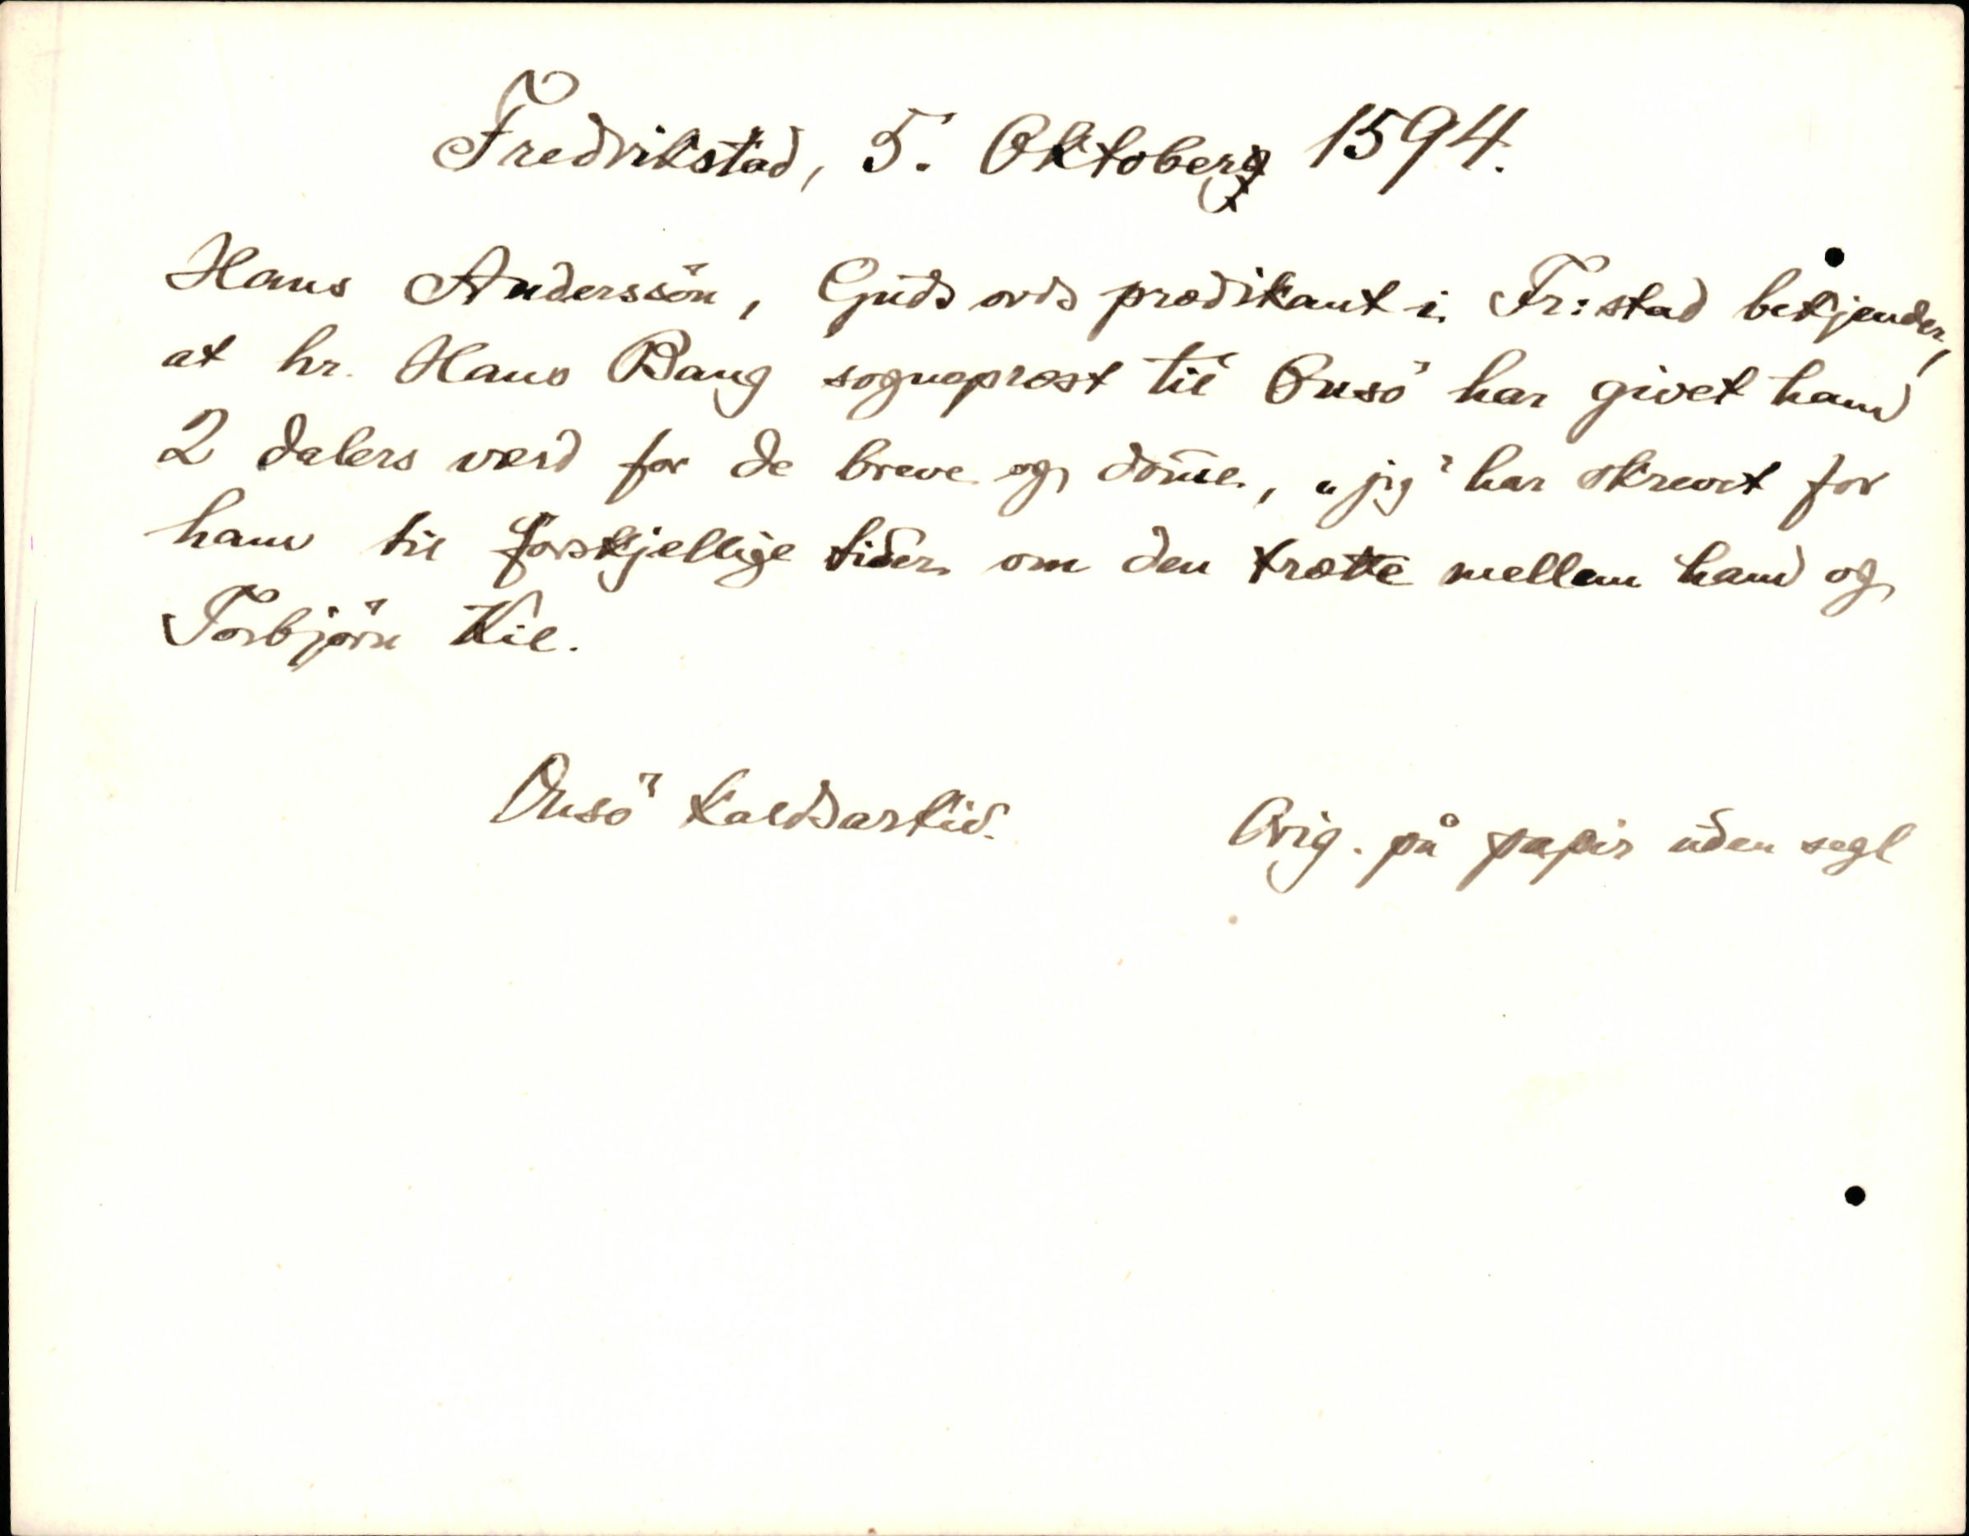 Fredrikstad, 5. Oktober 1594.
Hans Anderssön, Guds ords prædikant i Fr:stad bekjender,
at hr. Hans Bang sogneprest til Onsö har givet ham
2 dalers værd for de breve og domme, „jeg" har skrevet for
ham til forskjellige tider om den trætte mellem ham og
Torbjörn Kil.
Onsö kaldsarkiv.
Orig. på papir uden segl